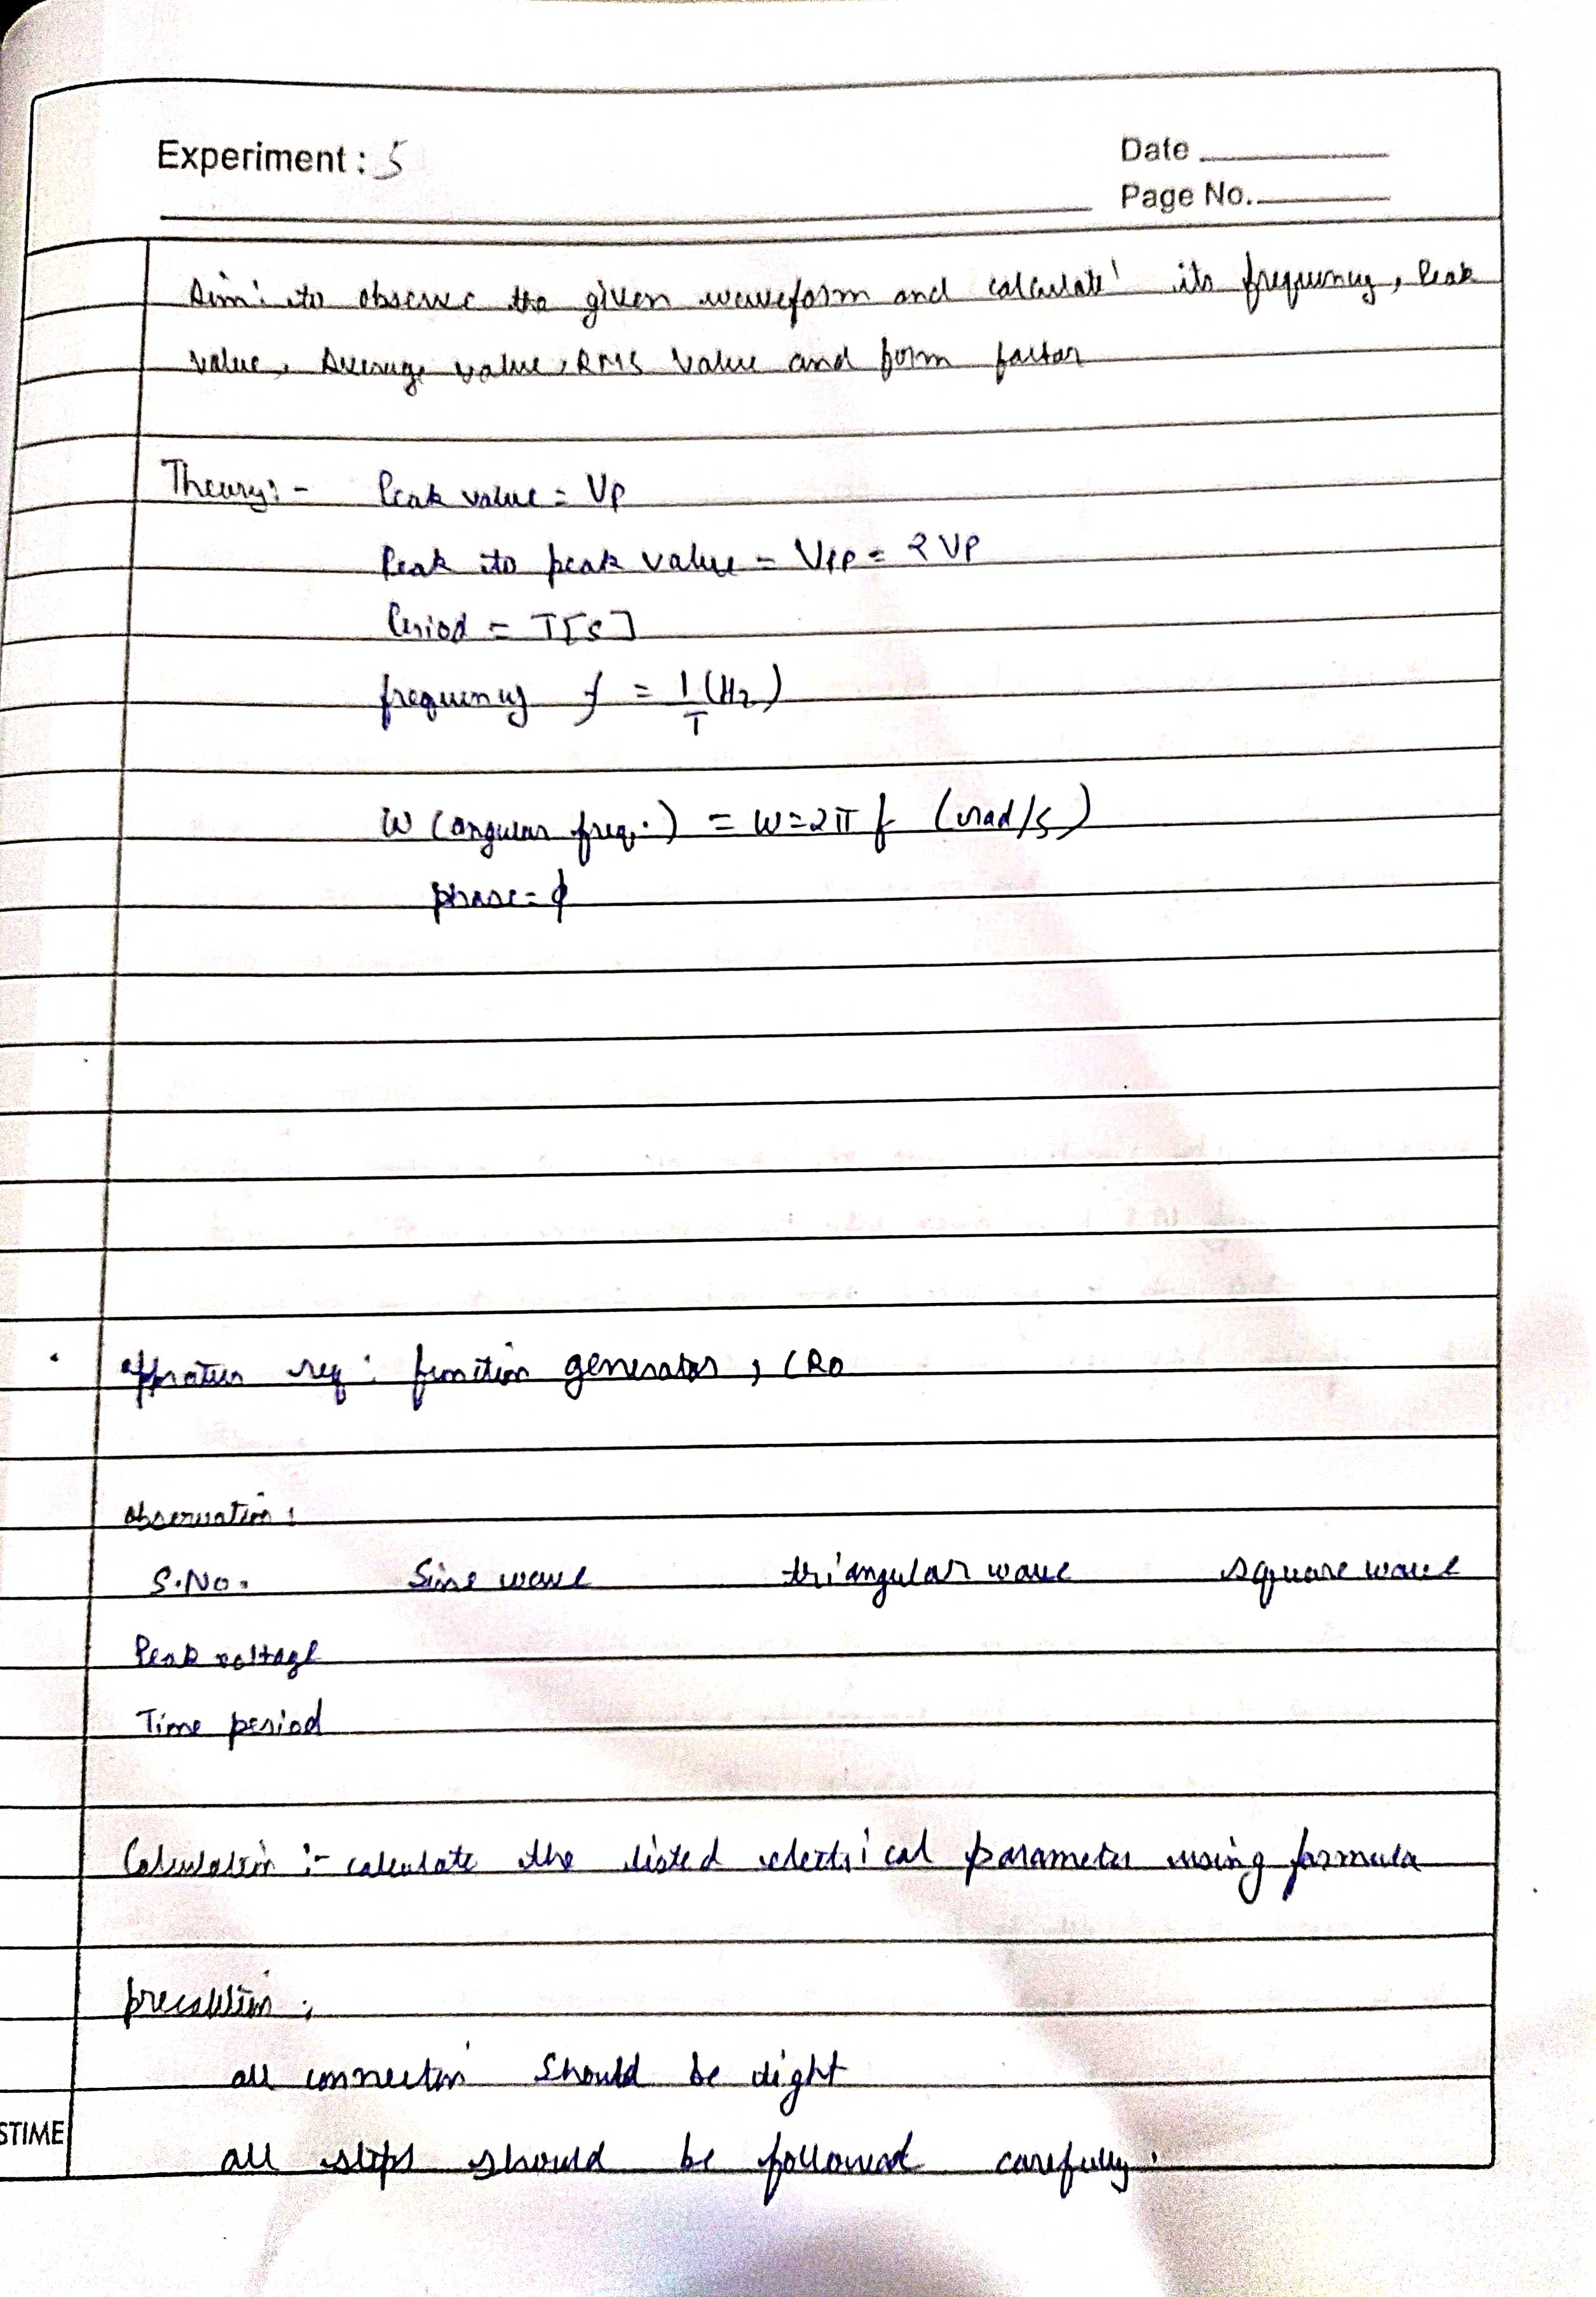 Experiment : 5
Date
Page No.
Aim: to observe the given waveform and calculate its frequency, Peak
value, Average value, RMS value and form factor
Theory: - Peak value = VP
Peak to peak value = VPP = 2 VP
Period = T[s]
frequency f = 1/T (Hz)
W (angular freq.) = W=2π f (rad/s)
phase = ϕ
appratus req : function generator, CRO
observation :
S.No. Sine wave triangular wave square wave
Peak voltage
Time period
Calculation :- calculate the listed electrical parameter using formula
precaution :
all connection should be tight
all steps should be followed carefully.
STIME